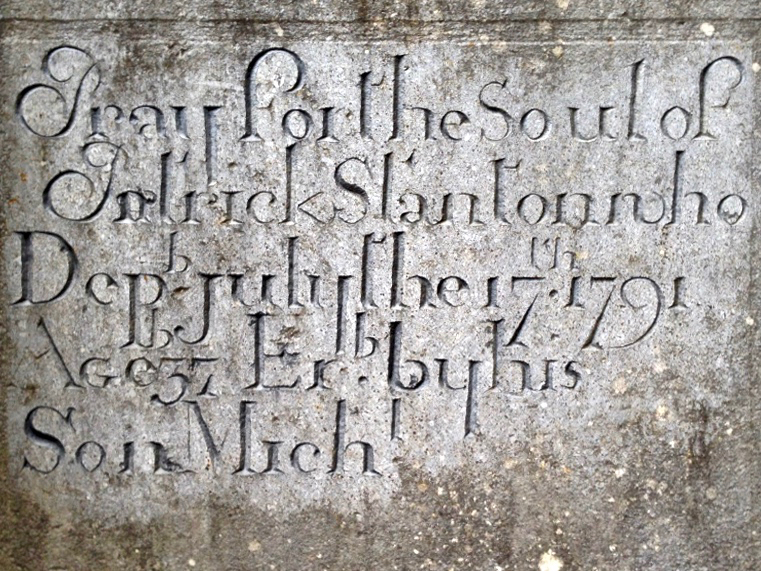 Pray for the Soul of
Patrick Stanton who
Depᵇ July the 17ᵗʰ 1791
Age 37 Erᵇ by his
Son Michˡ